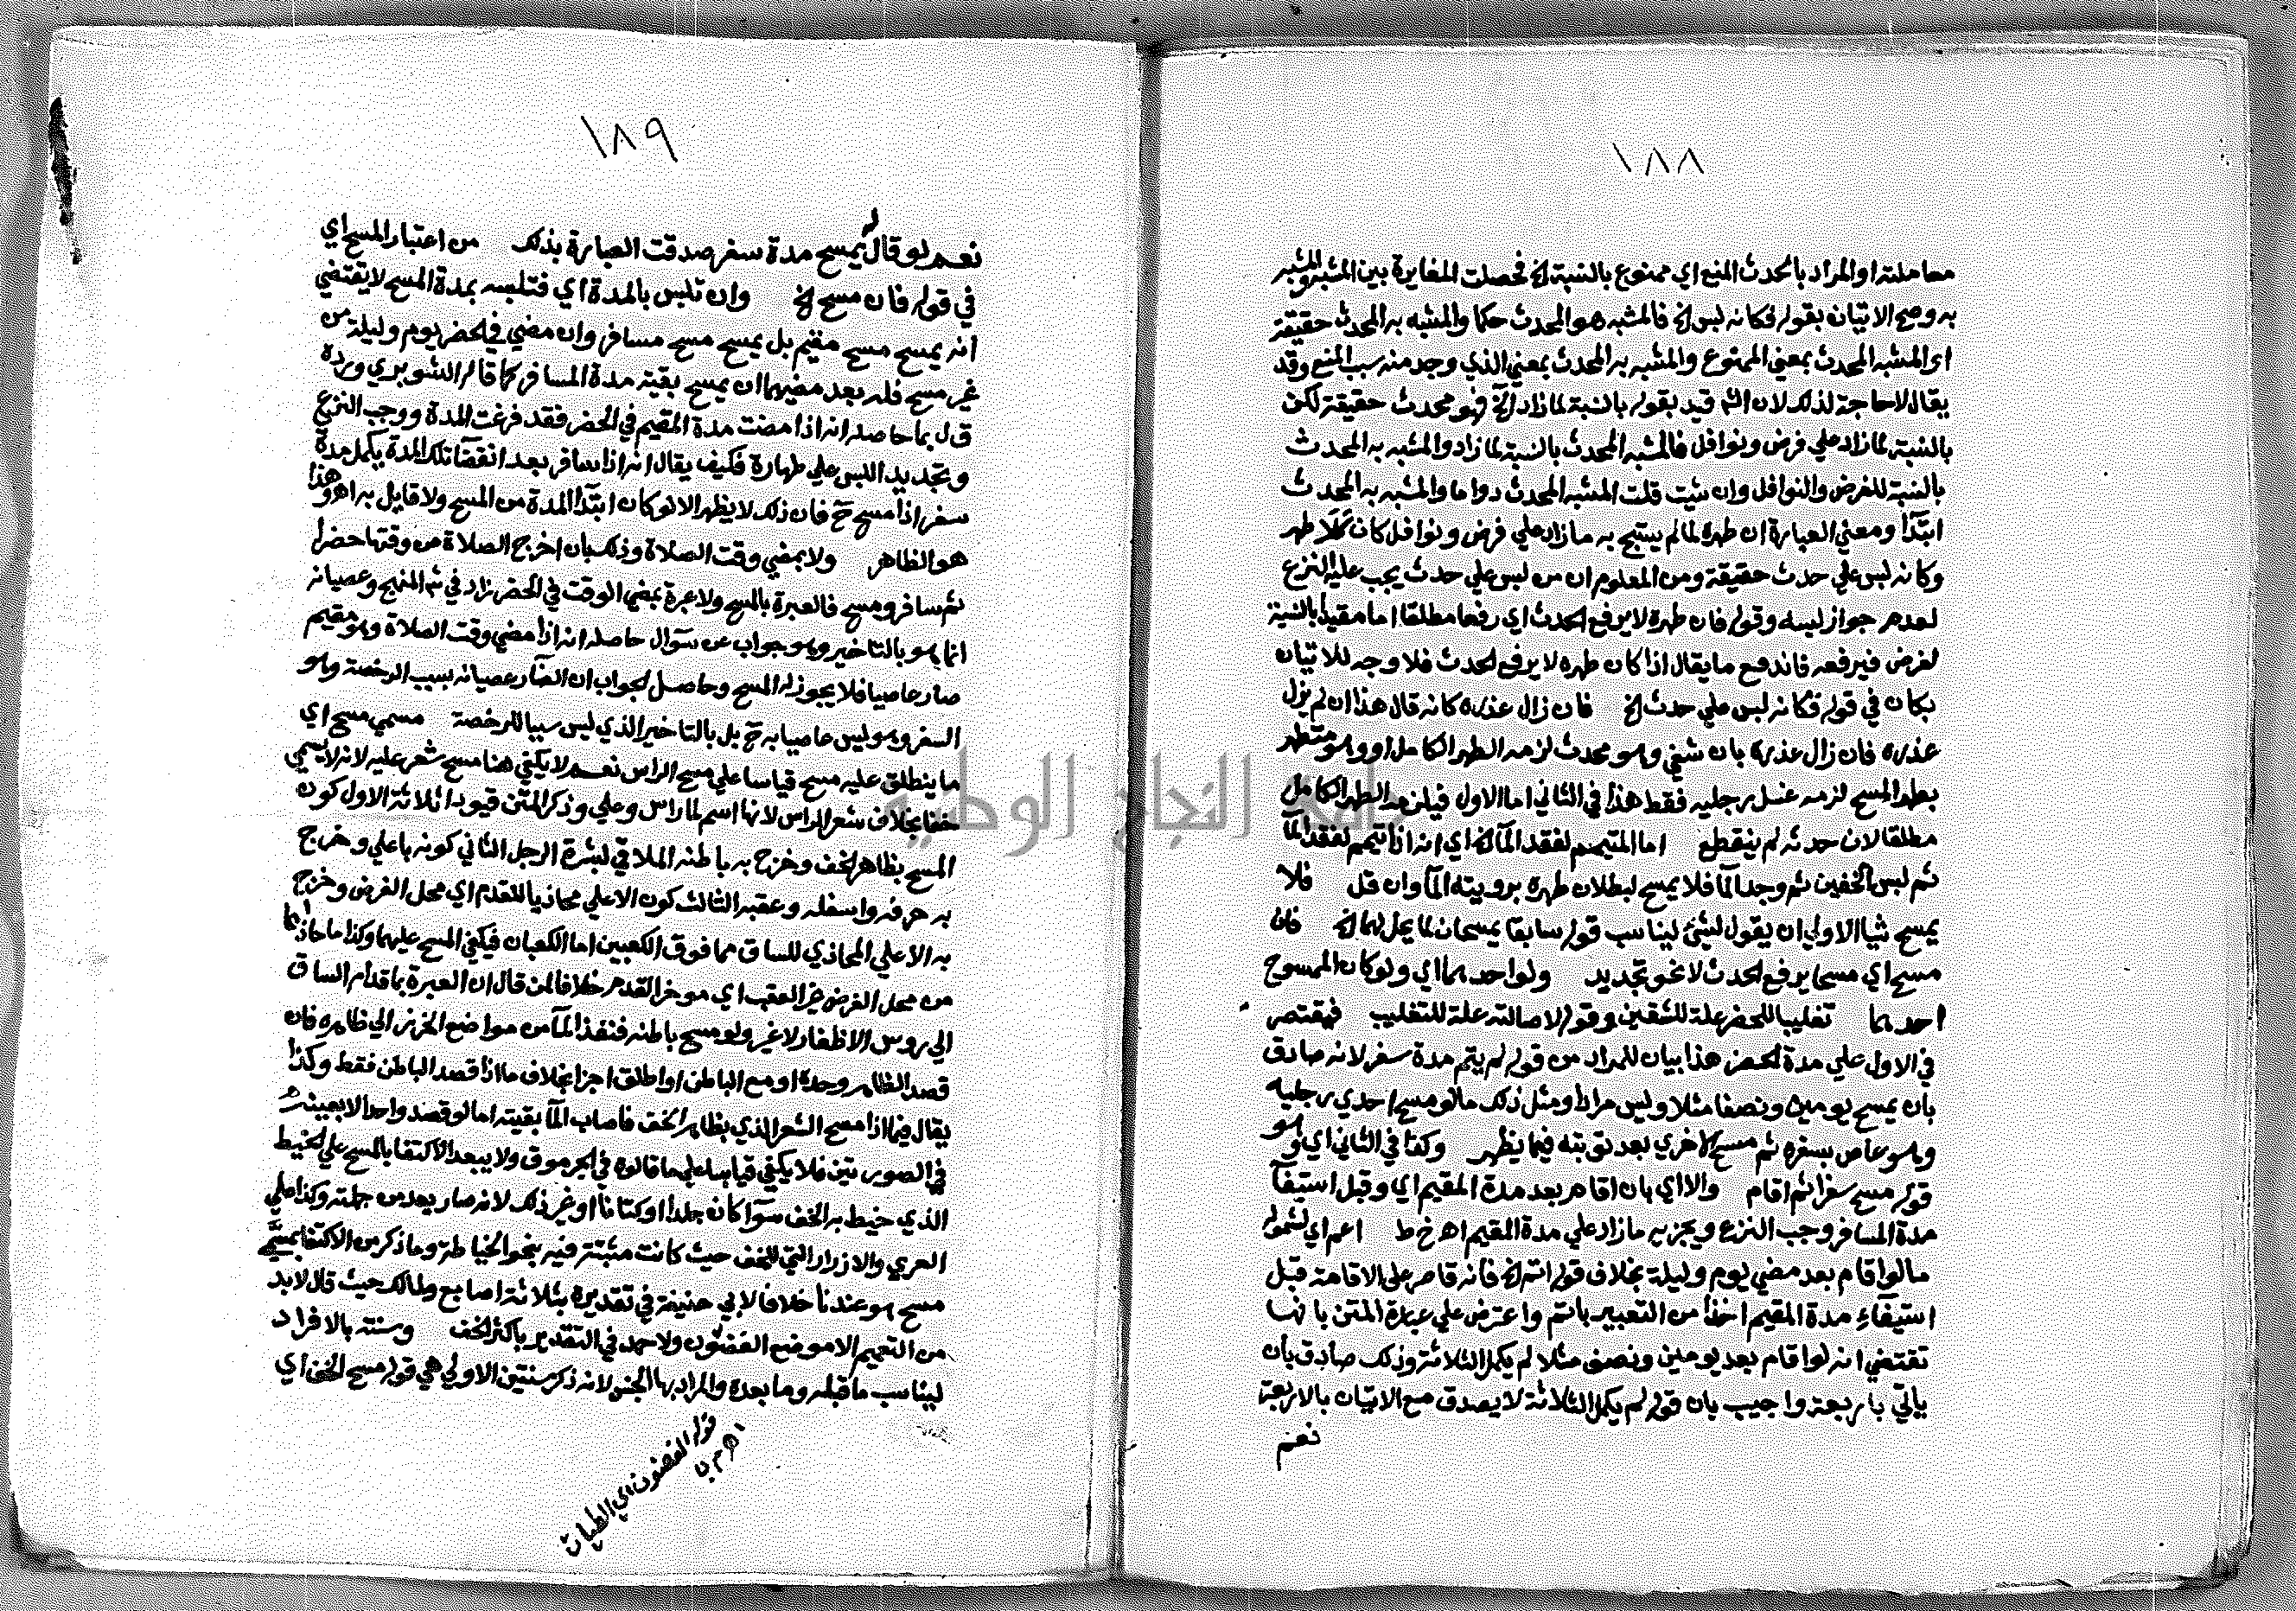 ١٨٨
معاملته او المراد بالمحدث المنع اي ممنوع بالنسبة الخ فحصلت المغايرة بين المشبه والمشبه
به وصح الاتيان بقوله فكانه لبس الخ فالمشبه هو المحدث حكما والمشبه به المحدث حقيقة
او المشبه المحدث بمعني الممنوع والمشبه به المحدث بمعني الذي وجد منه سبب المنع وقد
يقال لا حاجة لذلك لان الش قيد بقوله بالنسبة لما زاد الخ فهو محدث حقيقة لكن
بالنسبة لما زاد علي فرض ونوافل فالمشبه المحدث بالنسبة لما زاد والمشبه به المحدث
بالنسبة للفرض والنوافل وان شيت قلت المشبه المحدث دواما والمشبه به المحدث
ابتدآ ومعني العبارة ان طهره لما لم يستبح به ما زاد علي فرض ونوافل كان كلا طهر
وكانه لبس علي حدث حقيقة ومن المعلوم ان من لبس علي حدث يجب عليه النزع
لعدم جواز لبسه وقوله فان طهره لا يرفع الحدث اي رفعا مطلقا اما مقيدا بالنسبة
لفرض فيرفعه فاندفع ما يقال اذا كان طهره لا يرفع الحدث فلا وجه للاتيان
بكان في قوله فكانه لبس علي حدث الخ فان زال عذره كانه قال هذا ان لم يزل
عذره فان زال عذره بان شفي وهو محدث لزمه الطهر الكامل او وهو متطهر
بطهر المسح لزمه غسل رجليه فقط هذا في الثاني اما الاول فيلزمه الطهر الكامل
مطلقا لان حدثه لم ينقطع اما المتيمم لفقد المآ الخ اي انه اذا تيمم لفقد المآ
ثم لبس الخفين ثم وجد المآ فلا يمسح لبطلان طهره برويته المآ وان قل فلا
يمسح شيا الاولي ان يقول لشي ليناسب قوله سابقا يمسحان لما يحل لهما الخ فان
مسح اي مسحا يرفع الحدث لا نحو تجديد ولو احدهما اي ولو كان الممسوح
احدهما تغليبا للحضر علة للشقين وقوله لاصالته علة للتغليب فيقتصر
في الاول علي مدة الحضر هذا بيان للمراد من قوله لم يتم مدة سفر لانه صادق
بان يمسح يومين ونصفا مثلا وليس مرادا ومثل ذلك ما لو مسح احدي رجليه
وهو عاص بسفره ثم مسح الاخري بعد توبته فيما يظهر وكذا في الثاني اي وهو
قوله مسح سفرا ثم اقام والا اي بان اقام بعد مدة المقيم اي وقبل استيفآ
مدة المسافر وجب النزع ويجزيه ما زاد علي مدة المقيم اهـ خ ط اعم اي لشموله
ما لو اقام بعد مضي يوم وليلة بخلاف قوله اتم الخ فانه قاصر علي الاقامة قبل
استيفآء مدة المقيم اخذا من التعبير باتم واعترض علي عبارة المتن بانها
تقتضي انه لو اقام بعد يومين ونصف مثلا لم يكمل الثلاثة وذلك صادق بان
ياتي باربعة واجيب بان قوله لم يكمل الثلاثة لا يصدق مع الاتيان بالاربعة
نعم
١٨٩
نعم لو قال لم يمسح مدة سفر صدقت العبارة بذلك من اعتبار المسح اي
في قوله فان مسح الخ وان تلبس بالمدة اي فتلبسه بمدة المسح لا يقتضي
انه يمسح مسح مقيم بل يمسح مسح مسافر وان مضي في الحضر يوم وليلة من
غير مسح فله بعد مضيهما ان يمسح بقية مدة المسافر كما قاله الشوبري ورده
ق ل بما حاصله انه اذا مضت مدة المقيم في الحضر فقد فرغت المدة ووجب النزع
وتجديد اللبس علي طهارة فكيف يقال انه اذا سافر بعد انقضآ تلك المدة يكمل مدة
سفر اذا مسح ح فان ذلك لا يظهر الا لو كان ابتدآ المدة من المسح ولا قايل به اهـ وهذا
هو الظاهر ولا بمضي وقت الصلاة وذلك بان اخرج الصلاة من وقتها حضرا
ثم سافر ومسح فالعبرة بالمسح ولا عبرة بمضي الوقت في الحضر زاد في ش المنهج وعصيانه
انما هو بالتاخير وهو جواب عن سؤال حاصله انه اذا مضي وقت الصلاة وهو مقيم
صار عاصيا فلا يجوز له المسح وحاصل الجواب ان الضآر عصيانه بسبب الرخصة وهو
السفر وهو ليس عاصيا به ح بل بالتاخير الذي ليس سببا للرخصة مسمي مسح اي
ما ينطلق عليه مسح قياسا علي مسح الراس نعم لا يكفي هنا مسح شعر عليه لانه لا يسمي
خفا بخلاف شعر الراس لانها اسم لما راس وعلي وذكر المتن قيودا ثلاثة الاول كون
المسح بظاهر الخف وخرج به باطنه الملاقي لبشرة الرجل الثاني كونه باعلي وخرج
به حرفه واسفله وعقبه الثالث كون الاعلي محاذيا للقدم اي محل الفرض وخرج
به الاعلي المحاذي للساق مما فوق الكعبين اما الكعبان فيكفي المسح عليهما وكذا ما حاذاهما
من محل الفرض غير العقب اي موخر القدم خلافا لمن قال ان العبرة بما قدام الساق
الي روس الاظفار لا غير ولو مسح باطنه فنفذ المآ من مواضع الخرز الي ظاهره فان
قصد الظاهر وحده او مع الباطن او اطلق اجزا بخلاف ما اذا قصد الباطن فقط وكذا
يقال فيما اذا مسح الشعر الذي بظاهر الخف فاصاب المآ بقيته اما لو قصد واحدا لا بعينه
في الصورتين فلا يكفي قياسا علي ما قالوه في الجرموق ولا يبعد الاكتفا بالمسح علي الخيط
الذي خيط به الخف سوآ كان جلدا او كتانا او غير ذلك لانه صار يعد من جملته وكذا علي
العري والازرار التي للخف حيث كانت مثبتة فيه بنحو الخياطة وما ذكر من الاكتفا بمسمي
مسح هو عندنا خلافا لابي حنيفة في تقديره بثلاثة اصابع ولمالك حيث قال لا بد
من التعميم الا موضع الغضون ولاحمد في التقدير باكثر الخف وسنته بالافراد
ليناسب ما قبله وما بعده والمراد بها الجنس لانه ذكر سنتين الاولي هي قوله مسح الخف اي
قوله الغضون اي الطيات